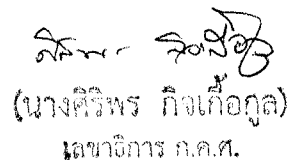 (นางศิริพร กิจเกื้อกูล)
เลขาธิการ ก.ค.ศ.